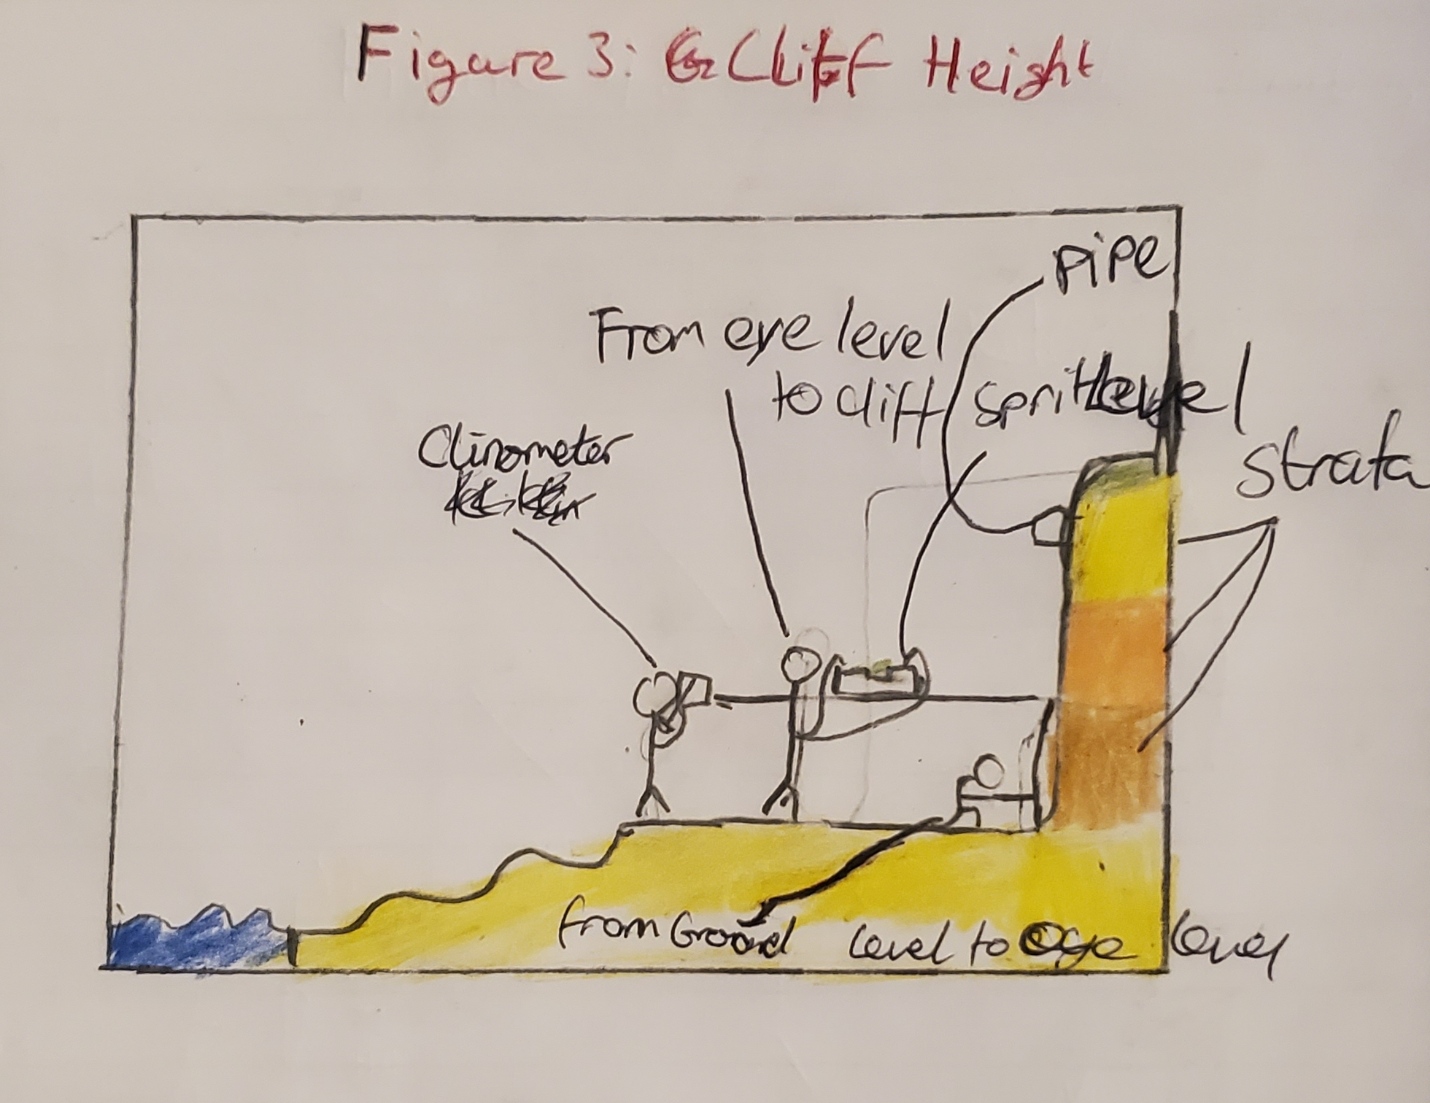 Figure 3: Cliff Height
pipe
From eye level
to cliff
spritlevel
Clinometer
Strata
from Ground level to eye level